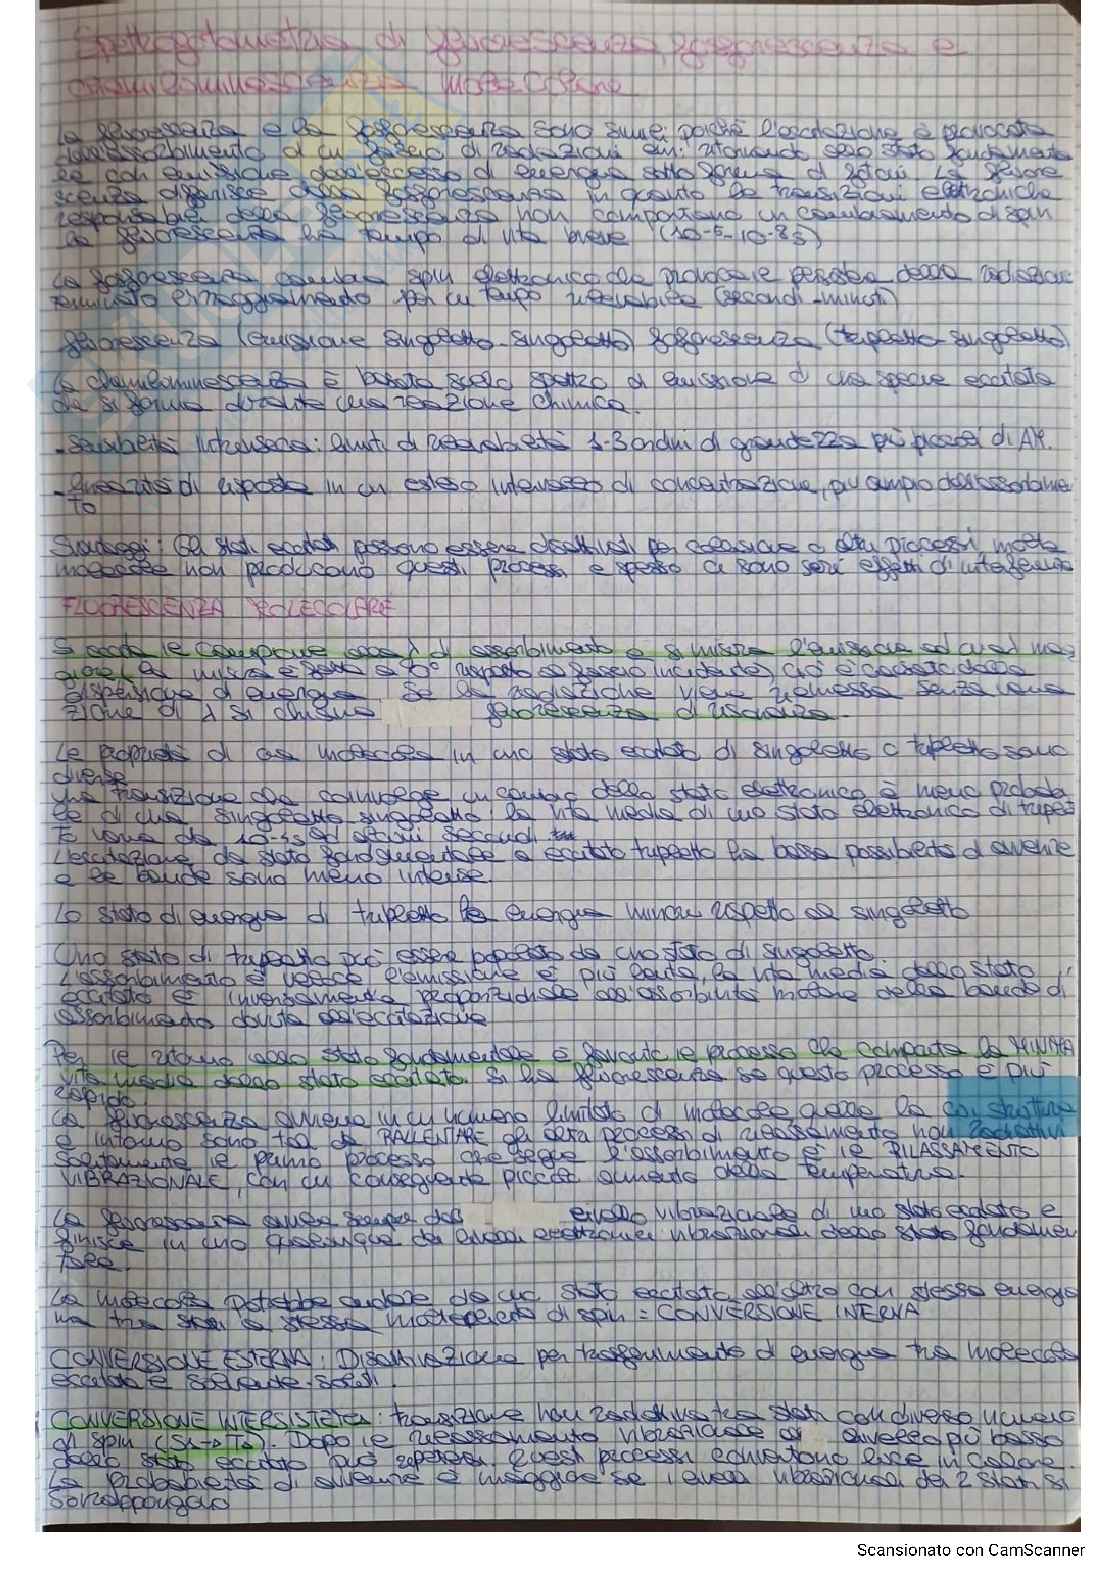 Spettrofotometria di fluorescenza, fosforescenza e
chemiluminescenza molecolare
La fluorescenza e la fosforescenza sono simili poichè l'eccitazione è provocata
dall'assorbimento di un fascio di radiazioni em. ritornando allo stato fondamenta
le con emissione dell'eccesso di energia sotto forma di fotoni. La fluore
scenza differisce dalla fosforescenza in quanto le transizioni elettroniche
responsabili della fluorescenza non comportano un cambiamento di spin
La fluorescenza ha tempo di vita breve (10-5-10-8s)
La fosforescenza cambia spin elettronico che provoca
per un tempo rilevabile (secondi-minuti)
fluorescenza (emissione singoletto-singoletto) fosforescenza (tripletto-singoletto)
La chemiluminescenza è basata sullo spettro di emissione di una specie eccitata
che si forma durante una reazione chimica.
- Sensibilità intrinseca: limiti di rilevabilità 1-3 ordini di grandezza più piccoli di AM.
- linearità di risposta in un esteso intervallo di concentrazione, più ampio dell'assorbime
to
Svantaggi: Gli stati eccitati possono essere disattivati per collisione o altri processi, molte
molecole non producono questi processi e spesso ci sono seri effetti di interferenza
FLUORESCENZA MOLECOLARE
Si eccita il campione alla λ di assorbimento e si misura l'emissione ad una λ mag
giore (la misura è fatta a 90° rispetto al fascio incidente) ciò è causato dalla
dispersione di energia. Se la radiazione viene riemessa senza varia
zione di λ si chiama fluorescenza di risonanza.
Le proprietà di una molecola in uno stato eccitato di singoletto o tripletto sono
diverse
Una transizione che coinvolge un cambio dello stato elettronico è meno probabi
le di una singoletto singoletto: la vita media di uno stato elettronico di triplet
to varia da 10-4s ad alcuni secondi
L'eccitazione da stato fondamentale a eccitato tripletto ha bassa possibilità di avvenire
e le bande sono meno intense.
Lo stato di energia di tripletto ha energia minore rispetto al singoletto
Uno stato di tripletto può essere popolato da uno stato di singoletto.
L'assorbimento è veloce l'emissione è più lenta, la vita media dello stato
eccitato è inversamente proporzionale all'assorbività molare della banda di
assorbimento dovuta all'eccitazione
Per il ritorno allo stato fondamentale è favorito il processo che comporta la MINIMA
vita media dello stato eccitato. Si ha fluorescenza se questo processo è più
rapido.
La fluorescenza avviene in un numero limitato di molecole quelle la cui struttura
e intorno sono tali da RALLENTARE gli altri processi di rilassamento non radiativi
Solitamente il primo processo che segue l'assorbimento è il RILASSAMENTO
VIBRAZIONALE, con un conseguente piccolo aumento della temperatura.
La fluorescenza avviene sempre dal livello vibrazionale di uno stato eccitato e
finisce in uno qualunque dei livelli vibrazionali dello stato fondamen
tale.
La molecola potrebbe andare da uno stato eccitato all'altro con stessa energia
ma tra stati a stessa molteplicità di spin = CONVERSIONE INTERNA
CONVERSIONE ESTERNA: Disattivazione per trasferimento di energia tra molecola
eccitata e solvente-soluti.
CONVERSIONE INTERSISTEMA: transizione non radiativa tra stati con diverso numero
di spin (S1→T1). Dopo il rilassamento vibrazionale al livello più basso
dello stato eccitato può ripetersi. Questi processi convertono luce in calore.
La probabilità di avvenire è maggiore se i livelli vibrazionali dei 2 stati si
sovrappongono
Scansionato con CamScanner